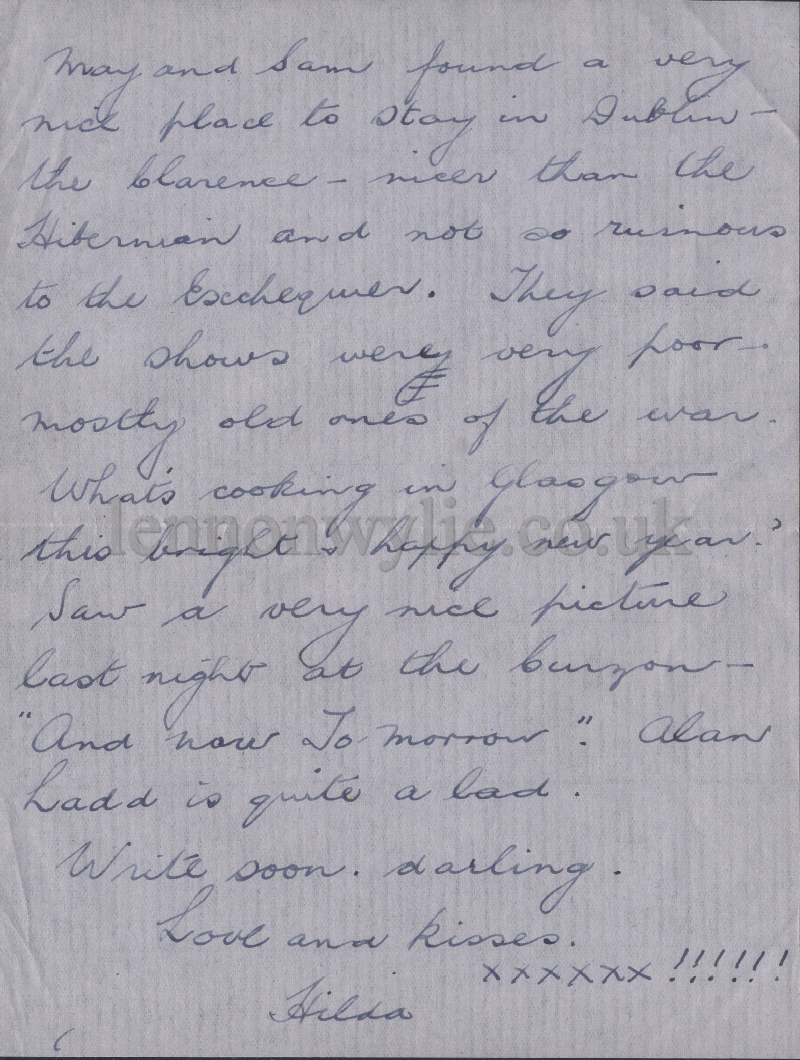 May and Sam found a very
nice place to stay in Dublin —
the Clarence — nicer than the
Hibernian and not so ruinous
to the Exchequer. They said
the shows were very poor —
mostly old ones of the war.
What's cooking in Glasgow
this bright & happy new year?
lennonwylie.co.uk
Saw a very nice picture
last night at the Curzon —
"And now To-morrow". Alan
Ladd is quite a lad.
Write soon. darling.
Love and kisses.
xxxxxx !!!!!!
Hilda